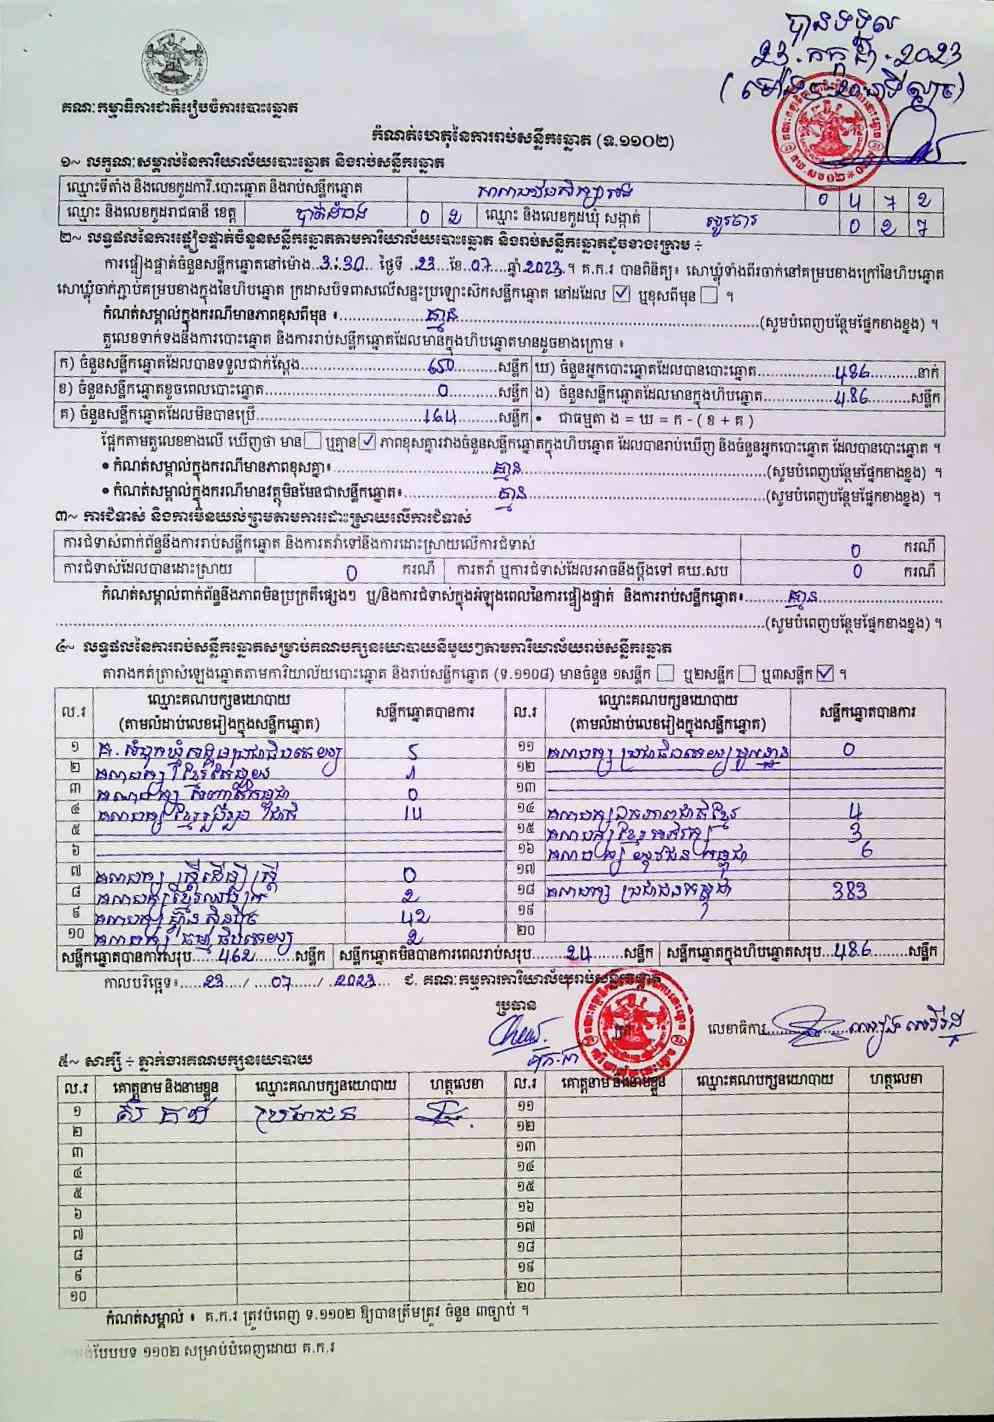 បានទទួល
23.កក្កដា.2023
គណៈកម្មាធិការជាតិរៀបចំការបោះឆ្នោត
កំណត់ហេតុនៃការរាប់សន្លឹកឆ្នោត (ទ.១១០២)
១~ លក្ខណៈសម្គាល់នៃការិយាល័យបោះឆ្នោត និងរាប់សន្លឹកឆ្នោត
ឈ្មោះទីតាំង និងលេខកូដការិ.បោះឆ្នោត និងរាប់សន្លឹកឆ្នោត 0 4 7 2
ឈ្មោះ និងលេខកូដរាជធានី ខេត្ត បាត់ដំបង 0 2 ឈ្មោះ និងលេខកូដឃុំ សង្កាត់ 0 2 7
២~ លទ្ធផលនៃការផ្ទៀងផ្ទាត់ចំនួនសន្លឹកឆ្នោតតាមការិយាល័យបោះឆ្នោត និងរាប់សន្លឹកឆ្នោតដូចខាងក្រោម ÷
ការផ្ទៀងផ្ទាត់ចំនួនសន្លឹកឆ្នោតនៅម៉ោង 3:30 ថ្ងៃទី 23 ខែ 07 ឆ្នាំ 2023 ។ គ.ក.រ បានពិនិត្យ៖ សោឃ្លុំទាំងពីរចាក់នៅគម្របខាងក្រៅនៃហិបឆ្នោត
សោឃ្លុំចាក់ភ្ជាប់គម្របខាងក្នុងនៃហិបឆ្នោត ក្រដាសបិទពាសលើសន្ទះប្រឡោះសិកសន្លឹកឆ្នោត នៅដដែល ☑ ឬខុសពីមុន ☐ ។
កំណត់សម្គាល់ក្នុងករណីមានភាពខុសពីមុន ៖ គ្មាន (សូមបំពេញបន្ថែមផ្នែកខាងខ្នង) ។
តួលេខទាក់ទងនឹងការបោះឆ្នោត និងការរាប់សន្លឹកឆ្នោតដែលមានក្នុងហិបឆ្នោតមានដូចខាងក្រោម ៖
ក) ចំនួនសន្លឹកឆ្នោតដែលបានទទួលជាក់ស្តែង 650 សន្លឹក ឃ) ចំនួនអ្នកបោះឆ្នោតដែលបានបោះឆ្នោត 486 នាក់
ខ) ចំនួនសន្លឹកឆ្នោតខូចពេលបោះឆ្នោត 0 សន្លឹក ង) ចំនួនសន្លឹកឆ្នោតដែលមានក្នុងហិបឆ្នោត 486 សន្លឹក
គ) ចំនួនសន្លឹកឆ្នោតដែលមិនបានប្រើ 164 សន្លឹក • ជាធម្មតា ង = ឃ = ក - ( ខ + គ )
ផ្អែកតាមតួលេខខាងលើ ឃើញថា មាន ☐ ឬគ្មាន ☑ ភាពខុសគ្នារវាងចំនួនសន្លឹកឆ្នោតក្នុងហិបឆ្នោត ដែលបានរាប់ឃើញ និងចំនួនអ្នកបោះឆ្នោត ដែលបានបោះឆ្នោត ។
• កំណត់សម្គាល់ក្នុងករណីមានភាពខុសគ្នា៖ គ្មាន (សូមបំពេញបន្ថែមផ្នែកខាងខ្នង) ។
• កំណត់សម្គាល់ក្នុងករណីមានវត្ថុមិនមែនជាសន្លឹកឆ្នោត៖ គ្មាន (សូមបំពេញបន្ថែមផ្នែកខាងខ្នង) ។
៣~ ការជំទាស់ និងការមិនយល់ព្រមតាមការដោះស្រាយលើការជំទាស់
ការជំទាស់ពាក់ព័ន្ធនឹងការរាប់សន្លឹកឆ្នោត និងការតវ៉ាទៅនឹងការដោះស្រាយលើការជំទាស់ 0 ករណី
ការជំទាស់ដែលបានដោះស្រាយ 0 ករណី ការតវ៉ា ឬការជំទាស់ដែលអាចនឹងប្តឹងទៅ គឃ.សប 0 ករណី
កំណត់សម្គាល់ពាក់ព័ន្ធនឹងភាពមិនប្រក្រតីផ្សេងៗ ឬ/និងការជំទាស់ក្នុងអំឡុងពេលនៃការផ្ទៀងផ្ទាត់ និងការរាប់សន្លឹកឆ្នោត៖ គ្មាន
(សូមបំពេញបន្ថែមផ្នែកខាងខ្នង) ។
៤~ លទ្ធផលនៃការរាប់សន្លឹកឆ្នោតសម្រាប់គណបក្សនយោបាយនីមួយៗតាមការិយាល័យរាប់សន្លឹកឆ្នោត
តារាងកត់ត្រាសំឡេងឆ្នោតតាមការិយាល័យបោះឆ្នោត និងរាប់សន្លឹកឆ្នោត (ទ.១១០៨) មានចំនួន ១សន្លឹក ☐ ឬ២សន្លឹក ☐ ឬ៣សន្លឹក ☑ ។
ល.រ ឈ្មោះគណបក្សនយោបាយ (តាមលំដាប់លេខរៀងក្នុងសន្លឹកឆ្នោត) សន្លឹកឆ្នោតបានការ ល.រ ឈ្មោះគណបក្សនយោបាយ (តាមលំដាប់លេខរៀងក្នុងសន្លឹកឆ្នោត) សន្លឹកឆ្នោតបានការ
១ គ.សំបុកឃ្មុំសង្គមប្រជាធិបតេយ្យ 5 ១១ គណបក្ស ប្រជាធិបតេយ្យមូលដ្ឋាន 0
២ គណបក្ស ខ្មែរតែមួយ 1 ១២
៣ គណបក្ស សញ្ជាតិកម្ពុជា 0 ១៣
៤ គណបក្ស ខ្មែររួបរួមជាតិ 14 ១៤ គណបក្ស ឯកភាពជាតិខ្មែរ 4
៥ ១៥ គណបក្ស ខ្មែរអភិរក្ស 3
៦ ១៦ គណបក្ស យុវជនកម្ពុជា 6
៧ គណបក្ស ស្ត្រីដើម្បីស្ត្រី 0 ១៧
៨ គណបក្ស ខ្មែរឈប់ក្រ 2 ១៨ គណបក្ស ប្រជាជនកម្ពុជា 383
៩ គណបក្ស ហ្វ៊ុនស៊ិនប៉ិច 42 ១៩
១០ គណបក្ស ធម្មាធិបតេយ្យ 2 ២០
សន្លឹកឆ្នោតបានការសរុប 462 សន្លឹក សន្លឹកឆ្នោតមិនបានការពេលរាប់សរុប 24 សន្លឹក សន្លឹកឆ្នោតក្នុងហិបឆ្នោតសរុប 486 សន្លឹក
កាលបរិច្ឆេទ៖ 23 / 07 / 2023 ជ. គណៈកម្មការការិយាល័យរាប់សន្លឹកឆ្នោត
ប្រធាន
លេខាធិការ
៥~ សាក្សី ÷ ភ្នាក់ងារគណបក្សនយោបាយ
ល.រ គោត្តនាម និងនាមខ្លួន ឈ្មោះគណបក្សនយោបាយ ហត្ថលេខា ល.រ គោត្តនាម និងនាមខ្លួន ឈ្មោះគណបក្សនយោបាយ ហត្ថលេខា
១ ប្រជាជន ១១
២ ១២
៣ ១៣
៤ ១៤
៥ ១៥
៦ ១៦
៧ ១៧
៨ ១៨
៩ ១៩
១០ ២០
កំណត់សម្គាល់ ៖ គ.ក.រ ត្រូវបំពេញ ទ.១១០២ ឱ្យបានត្រឹមត្រូវ ចំនួន ៣ច្បាប់ ។
បែបបទ ១១០២ សម្រាប់បំពេញដោយ គ.ក.រ